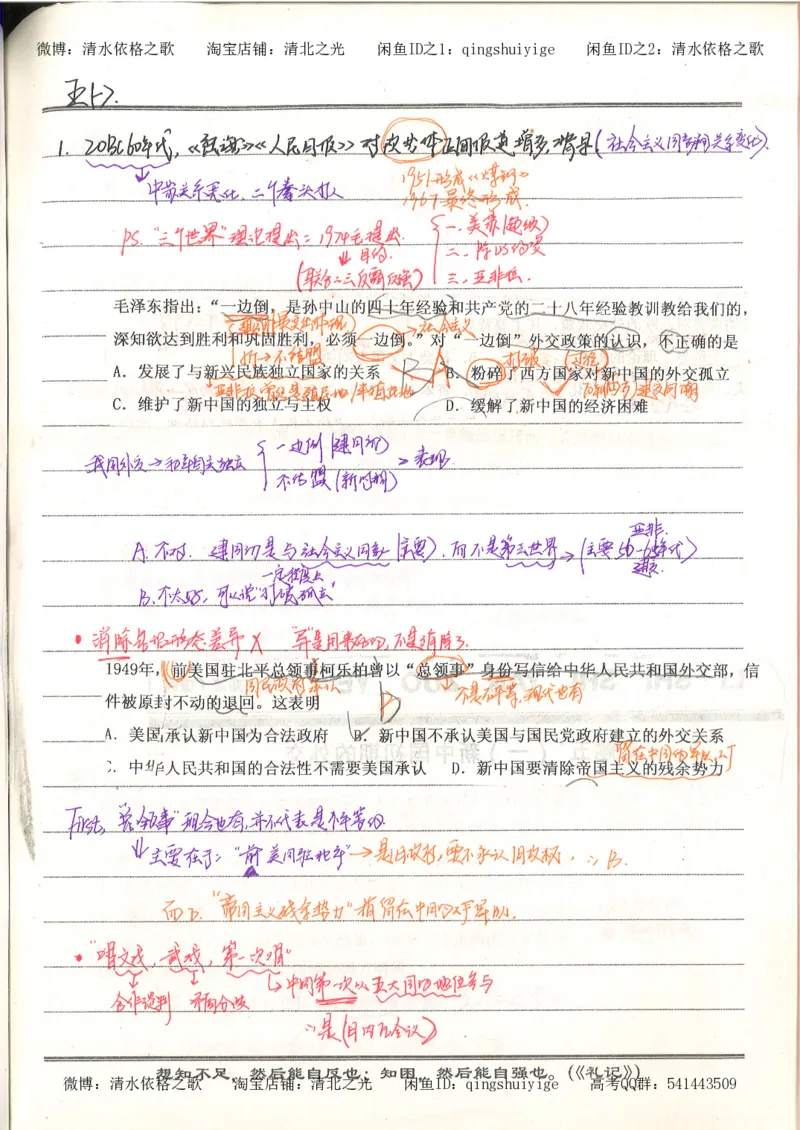 微博：清水依格之歌 淘宝店铺：清北之光 闲鱼ID之1：qingshuiyige 闲鱼ID之2：清水依格之歌
1. 20BC60年代,《 》《人民日报》对 体正面报道增多,背景(社会主义国家间关系变化).
1951形成《 》
中苏关系恶化,二个拳头打人
1967最终形成.
PS. "三个世界"理论提出：1974毛提出. 一.美苏(超级)
目的. 二.
(联合二三反霸反强) 三.亚非拉.
毛泽东指出：“一边倒，是孙中山的四十年经验和共产党的二十八年经验教训教给我们的，
社会主义
深知欲达到胜利和巩固胜利，必须一边倒。”对“一边倒”外交政策的认识，不正确的是
不结盟 B A 打破
A．发展了与新兴民族独立国家的关系 B．粉碎了西方国家对新中国的外交孤立
C．维护了新中国的独立与主权 D．缓解了新中国的经济困难
我国外交→和平自主独立 一边倒(建国初) 表现.
不结盟(新时期)
A.不对. 建国初是与社会主义国家(主要),而不是第三世界→(主要50-60年代)
亚非.
一定程度上
B.不太好,可以说"打破孤立"
• 消除意识形态差异 ×
1949年，前美国驻北平总领事柯乐柏曾以“总领事”身份写信给中华人民共和国外交部，信
国民政府承认 不是不平等,现代也有
件被原封不动的退回。这表明 B
A．美国承认新中国为合法政府 B．新中国不承认美国与国民党政府建立的外交关系
C．中华人民共和国的合法性不需要美国承认 D．新中国要清除帝国主义的残余势力
First, 总领事"现今也有,并不代表是不平等的
主要在于："前美国驻北平"→是旧政权,要不承认旧政权. ∴B.
而D."帝国主义残余势力"指留在中国的
• "唱文戏,武戏,第一次唱"
中国第一次以五大国的地位参与
合作谈判
∴是(日内瓦会议)
想知不足，然后能自反也；知困，然后能自强也。(《礼记》)
微博：清水依格之歌 淘宝店铺：清北之光 闲鱼ID：qingshuiyige 高考QQ群：541443509